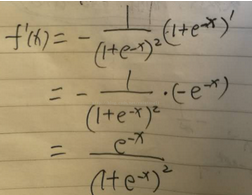 f'(x) = - 1/(1+e^-x)^2 (1+e^-x)'
= - 1/(1+e^-x)^2 · (-e^-x)
= e^-x/(1+e^-x)^2